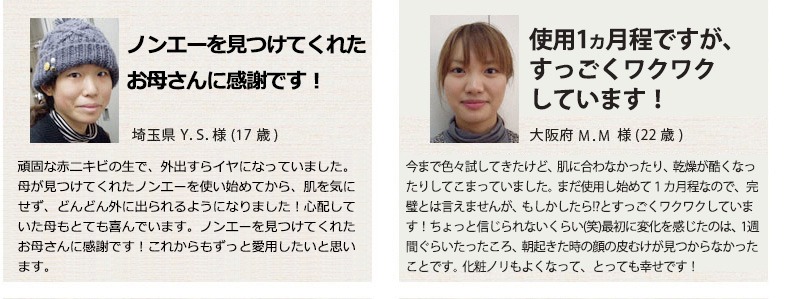 ノンエーを見つけてくれた
お母さんに感謝です！
埼玉県 Y.S.様 (17 歳)
頑固な赤ニキビの生で、外出すらイヤになっていました。
母が見つけてくれたノンエーを使い始めてから、肌を気に
せず、どんどん外に出られるようになりました！心配して
いた母もとても喜んでいます。ノンエーを見つけてくれた
お母さんに感謝です！これからもずっと愛用したいと思い
ます。
使用1ヵ月程ですが、
すっごくワクワク
しています！
大阪府 M.M 様 (22 歳)
今まで色々試してきたけど、肌に合わなかったり、乾燥が酷くなっ
たりしてこまっていました。まだ使用し始めて１カ月程なので、完
璧とは言えませんが、もしかしたら!?とすっごくワクワクしていま
す！ちょっと信じられないくらい(笑)最初に変化を感じたのは、1週
間ぐらいたったころ、朝起きた時の顔の皮むけが見つからなかった
ことです。化粧ノリもよくなって、とっても幸せです！